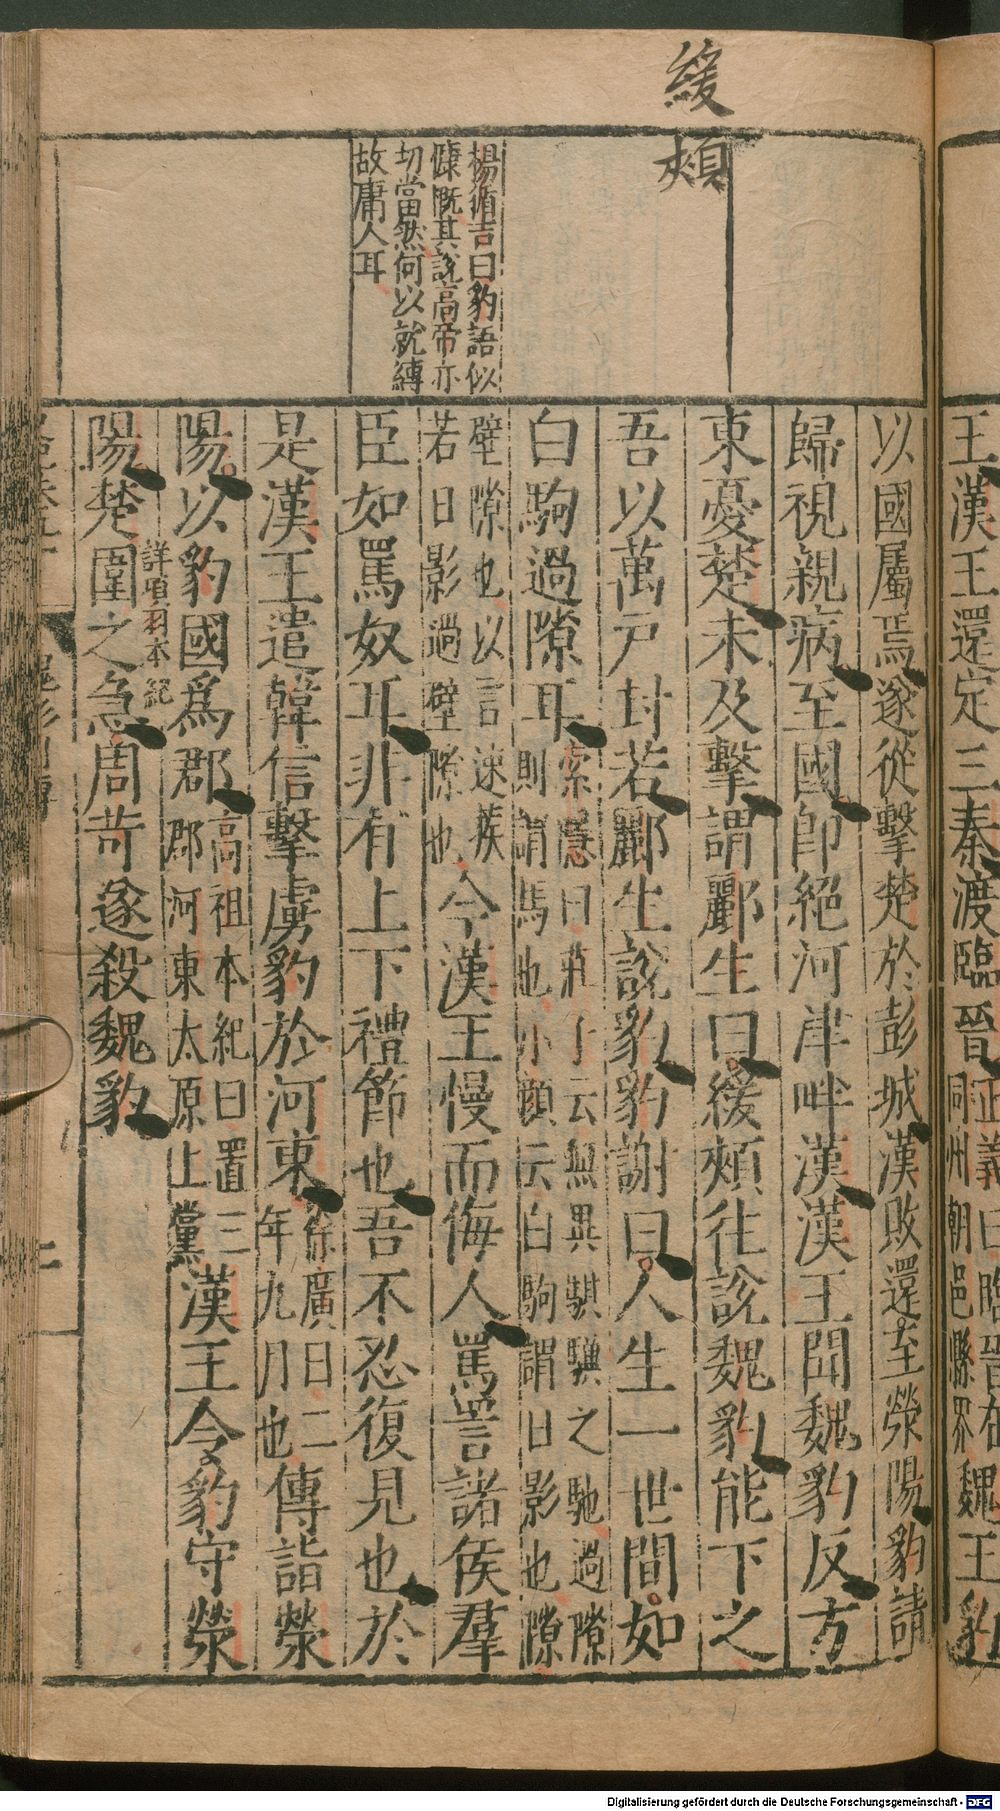 王漢王還定三秦渡臨晉
正義曰臨晉在
同州朝邑縣界
魏王豹
緩
頰
楊循吉曰豹語似
慷慨其說高帝亦
切當然何以就縛
故庸人耳
以國屬焉遂從擊楚於彭城漢敗還至滎陽豹請
歸視親病至國即絕河津畔漢漢王聞魏豹反方
東憂楚未及擊謂酈生曰緩頰往說魏豹能下之
吾以萬戶封若酈生說豹豹謝曰人生一世間如
白駒過隙耳
索隱曰莊子云無異騏驥之馳過隙
則謂馬也小顏云白駒謂日影也隙
壁隙也以言速疾
若日影過壁隙也
今漢王慢而侮人罵詈諸侯羣
臣如罵奴耳非有上下禮節也吾不忍復見也於
是漢王遣韓信擊虜豹於河東
徐廣曰二
年九月也
傳詣滎
陽以豹國爲郡
高祖本紀曰置三
郡河東太原上黨
漢王令豹守滎
詳項羽本紀
陽楚圍之急周苛遂殺魏豹
Digitalisierung gefördert durch die Deutsche Forschungsgemeinschaft - DFG